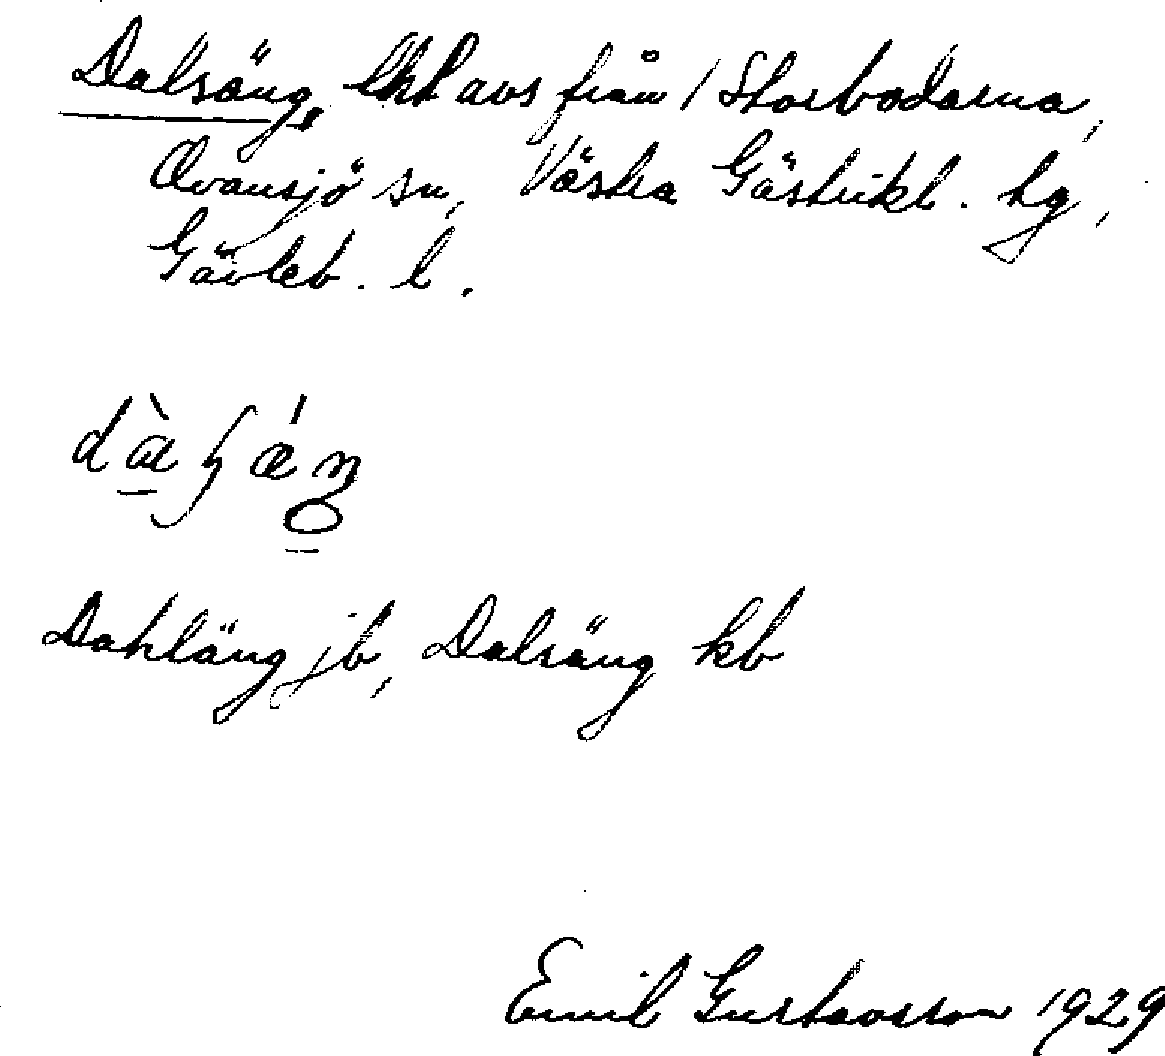 Dalsäng, lht avs från 1 Storbodarna,
Ovansjö sn, Västra Gästrikl. tg,
Gävleb. l.
Dahläng jb, Dalsäng kb
Emil Gustavsson 1929